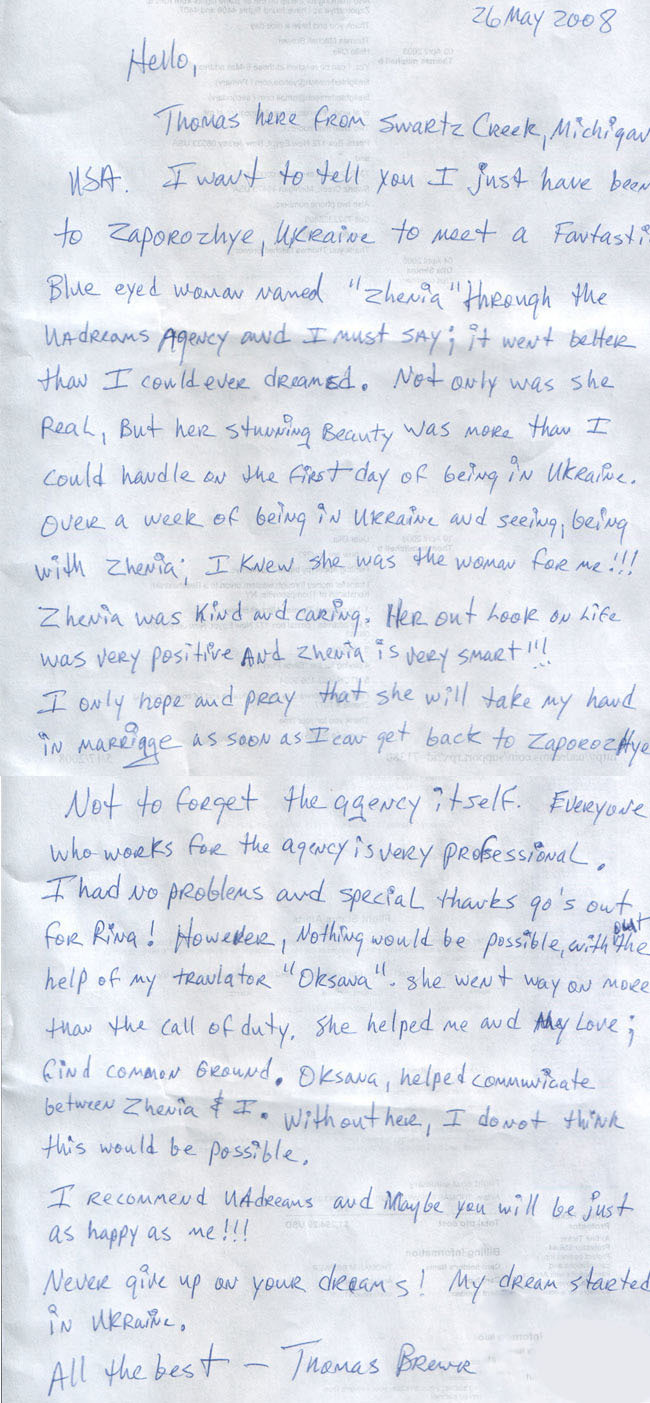 26 May 2008
Hello,
Thomas here from Swartz Creek, Michigan
USA. I want to tell you I just have been
to Zaporozhye, Ukraine to meet a Fantasti
Blue eyed woman named "Zhenia" through the
UAdreams Agency and I must say; it went better
than I could ever dreamed. Not only was she
Real, But her stunning Beauty was more than I
could handle on the first day of being in Ukraine.
Over a week of being in Ukraine and seeing, being
with Zhenia; I knew she was the woman for me!!!
Zhenia was kind and caring. Her out look on life
was very positive and Zhenia is very smart!!!
I only hope and pray that she will take my hand
in marrigge as soon as I can get back to Zaporozhye
Not to forget the agency itself. Everyone
who works for the agency is very professional.
I had no problems and special thanks go's out
for Rina! However, Nothing would be possible, without the
help of my tranlator "Oksana". She went way on more
than the call of duty. She helped me and My Love;
find common Ground. Oksana, helped communicate
between Zhenia & I. Without here, I do not think
this would be possible.
I recommend UAdreams and Maybe you will be just
as happy as me!!!
Never give up on your dreams! My dream started
in Ukraine.
All the best – Thomas Brewer